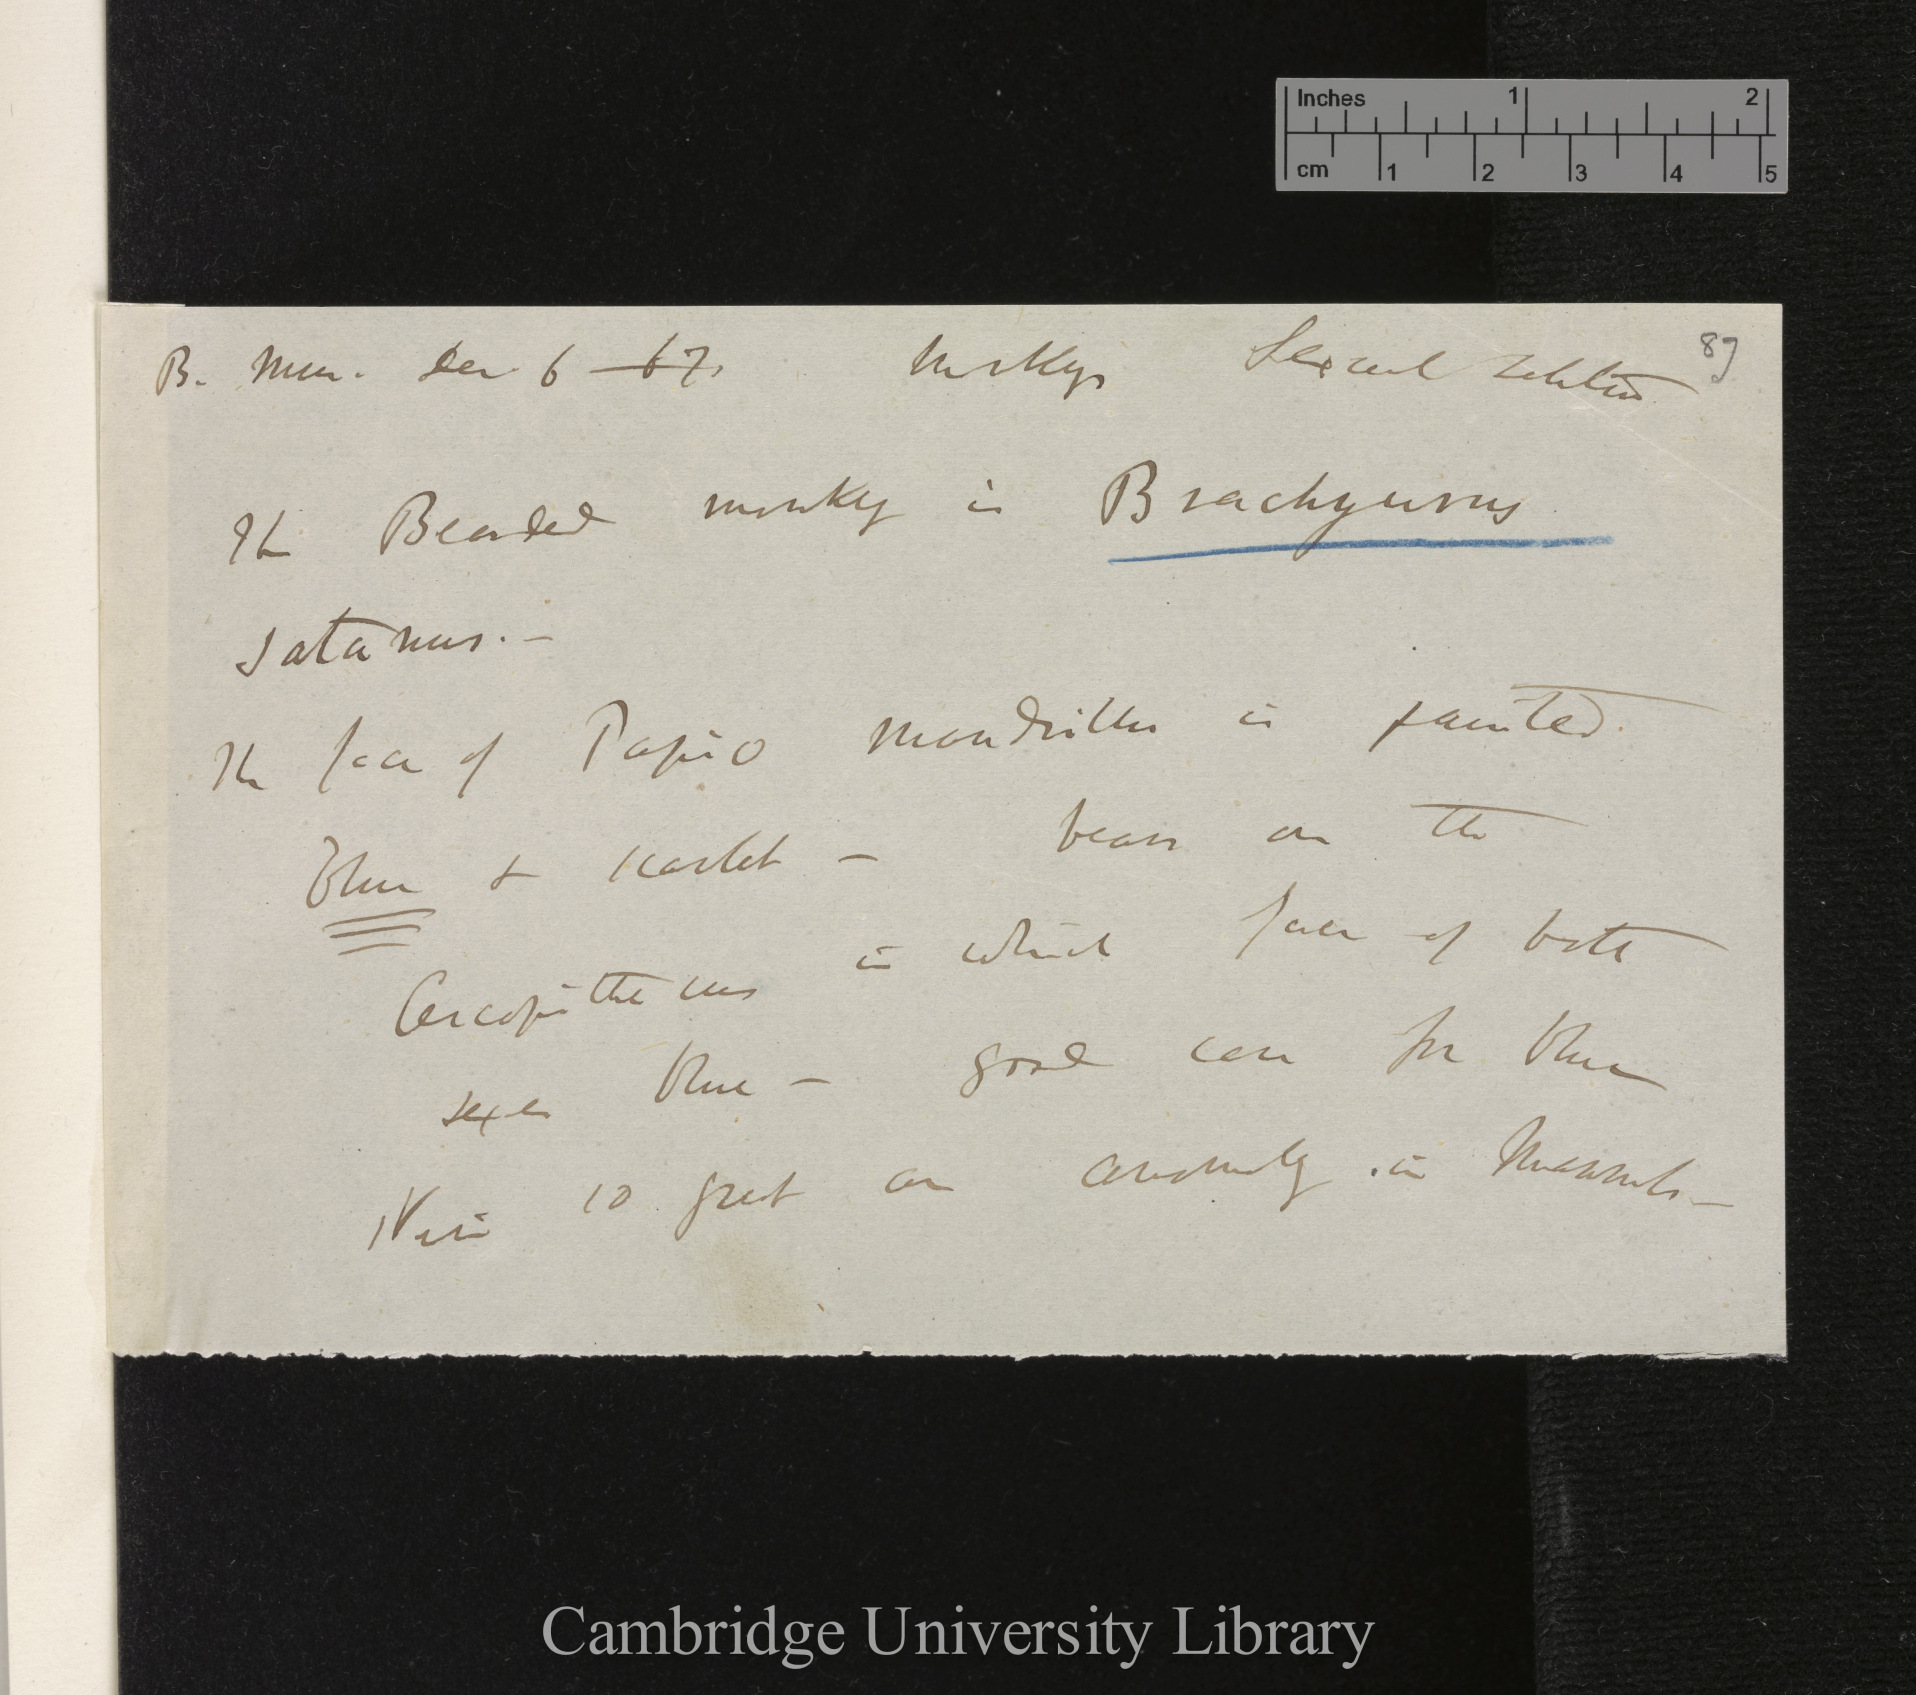 Inches 1 2
cm 1 2 3 4 5
89
B. Mus. Dec 6 — 67. Monkeys Sexual selection
The Bearded monkey is Brachyurus
satanus. —
The face of Papio mandrillus is painted
blue & scarlet — bears on the
Cercopithecus in which face of both
sexes blue — good case for blue
so great an anomaly in Mammals —
Cambridge University Library